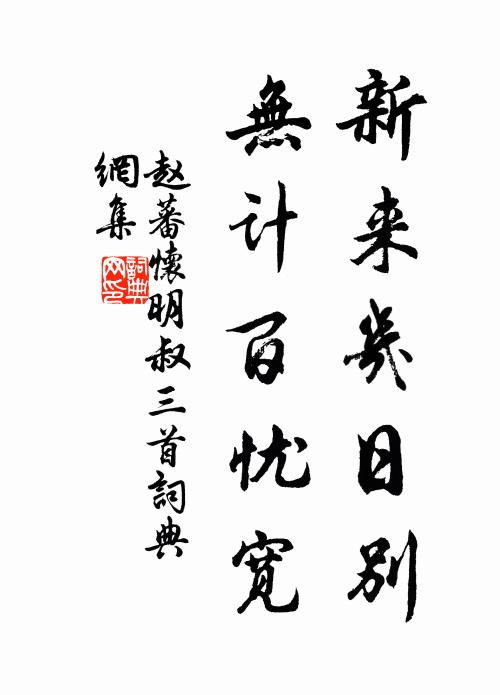 新来幾日別
無计百忧宽
赵蕃懷明叔三首詞典
網集
詞典網印